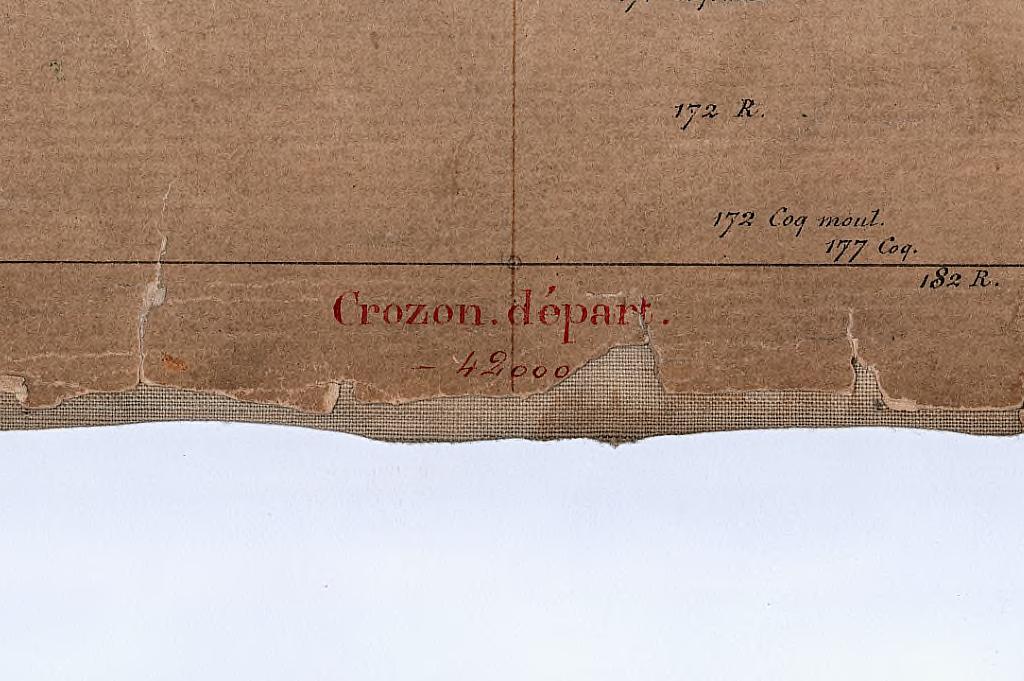 172 R.
172 Coq moul.
177 Coq.
182 R.
Crozon. départ.
- 42000